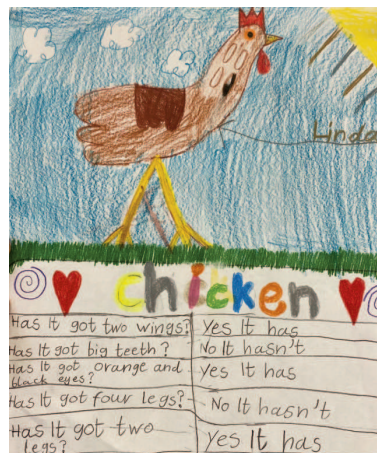 Linda
chicken
Has It got two wings? Yes It has
Has It got big teeth? No It hasn't
Has It got orange and
black eyes? Yes It has
Has It got four legs? No It hasn't
Has It got two
legs? Yes It has